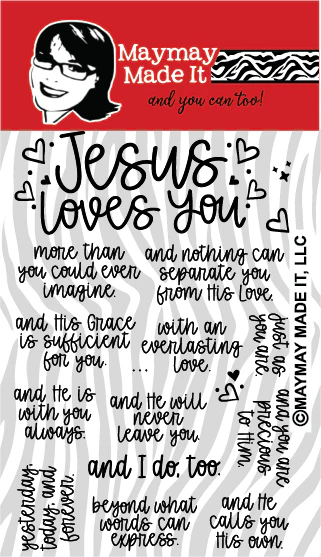 Maymay
Made It
and you can too!
Jesus
loves you
more than
you could ever
imagine.
and nothing can
separate you
from His love.
and His Grace
is sufficient
for you.
with an
everlasting
love.
...
just as
you are.
and you are
precious
to Him.
©MAYMAY MADE IT, LLC
and He is
with you
always.
and He will
never
leave you.
and I do, too.
yesterday,
today, and
forever.
beyond what
words can
express.
and He
calls you
His own.